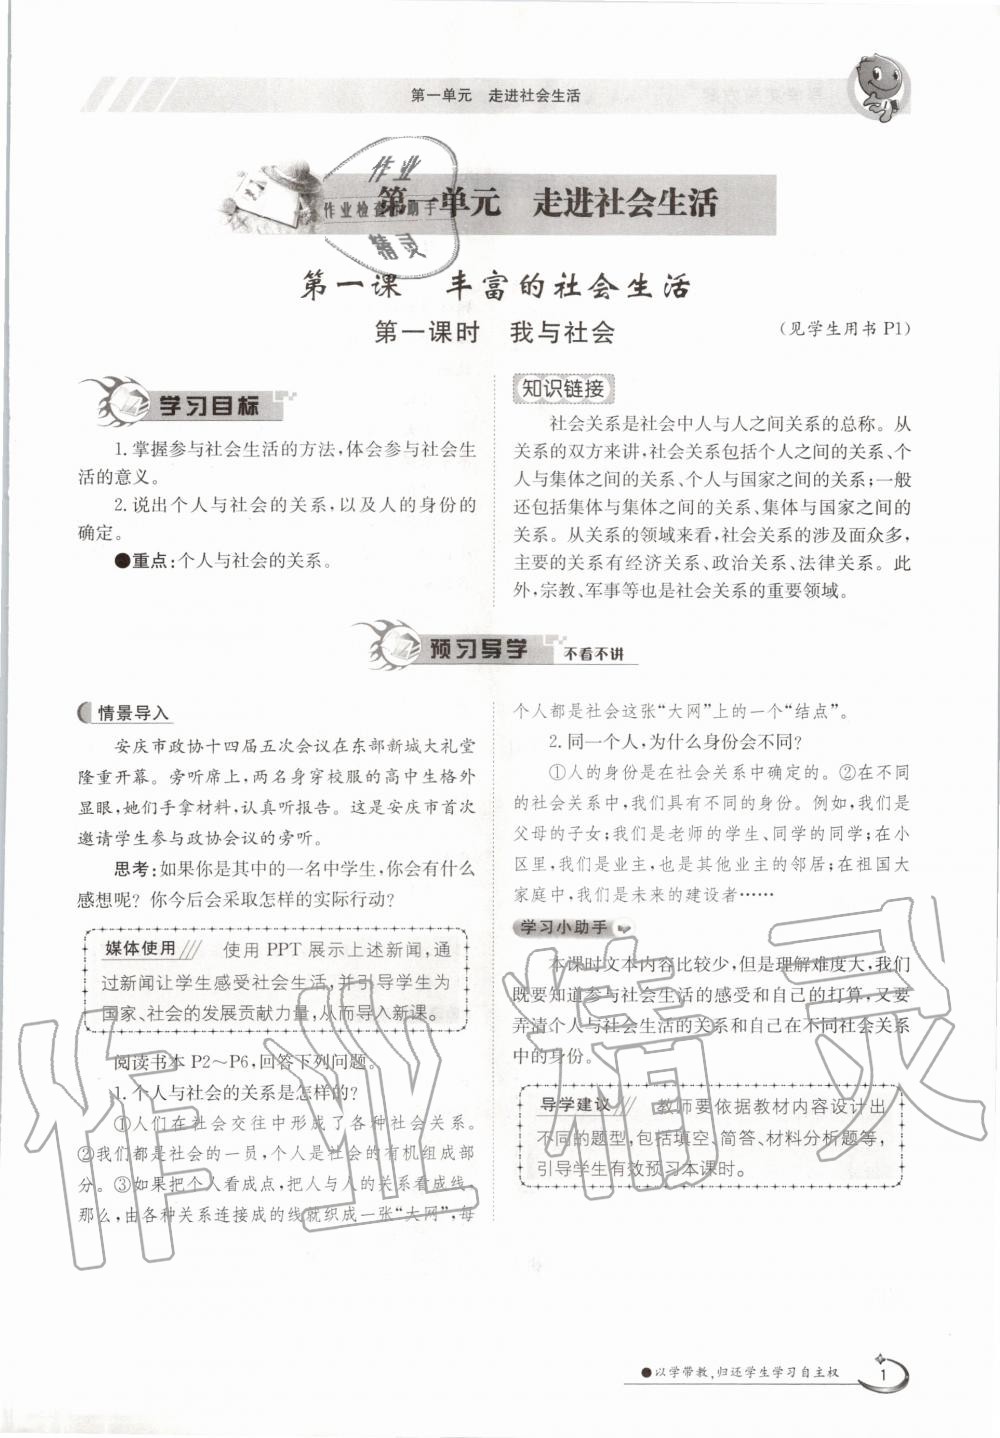 第一单元　走进社会生活
作业
作业检查小助手
精灵
第一单元　走进社会生活
第一课　丰富的社会生活
第一课时　我与社会
(见学生用书 P1)
学习目标
1. 掌握参与社会生活的方法,体会参与社会生
活的意义。
2. 说出个人与社会的关系,以及人的身份的
确定。
●重点:个人与社会的关系。
知识链接
社会关系是社会中人与人之间关系的总称。从
关系的双方来讲,社会关系包括个人之间的关系、个
人与集体之间的关系、个人与国家之间的关系;一般
还包括集体与集体之间的关系、集体与国家之间的
关系。从关系的领域来看,社会关系的涉及面众多,
主要的关系有经济关系、政治关系、法律关系。此
外,宗教、军事等也是社会关系的重要领域。
预习导学　不看不讲
情景导入
安庆市政协十四届五次会议在东部新城大礼堂
隆重开幕。旁听席上,两名身穿校服的高中生格外
显眼,她们手拿材料,认真听报告。这是安庆市首次
邀请学生参与政协会议的旁听。
思考:如果你是其中的一名中学生,你会有什么
感想呢? 你今后会采取怎样的实际行动?
媒体使用　使用 PPT 展示上述新闻,通
过新闻让学生感受社会生活,并引导学生为
国家、社会的发展贡献力量,从而导入新课。
阅读书本 P2～P6,回答下列问题。
1. 个人与社会的关系是怎样的?
①人们在社会交往中形成了各种社会关系。
②我们都是社会的一员,个人是社会的有机组成部
分。③如果把个人看成点,把人与人的关系看成线,
那么,由各种关系连接成的线就织成一张“大网”,每
个人都是社会这张“大网”上的一个“结点”。
2. 同一个人,为什么身份会不同?
①人的身份是在社会关系中确定的。②在不同
的社会关系中,我们具有不同的身份。例如,我们是
父母的子女;我们是老师的学生、同学的同学;在小
区里,我们是业主,也是其他业主的邻居;在祖国大
家庭中,我们是未来的建设者……
学习小助手
本课时文本内容比较少,但是理解难度大,我们
既要知道参与社会生活的感受和自己的打算,又要
弄清个人与社会生活的关系和自己在不同社会关系
中的身份。
导学建议　教师要依据教材内容设计出
不同的题型,包括填空、简答、材料分析题等,
引导学生有效预习本课时。
作业精灵
●以学带教,归还学生学习自主权
1